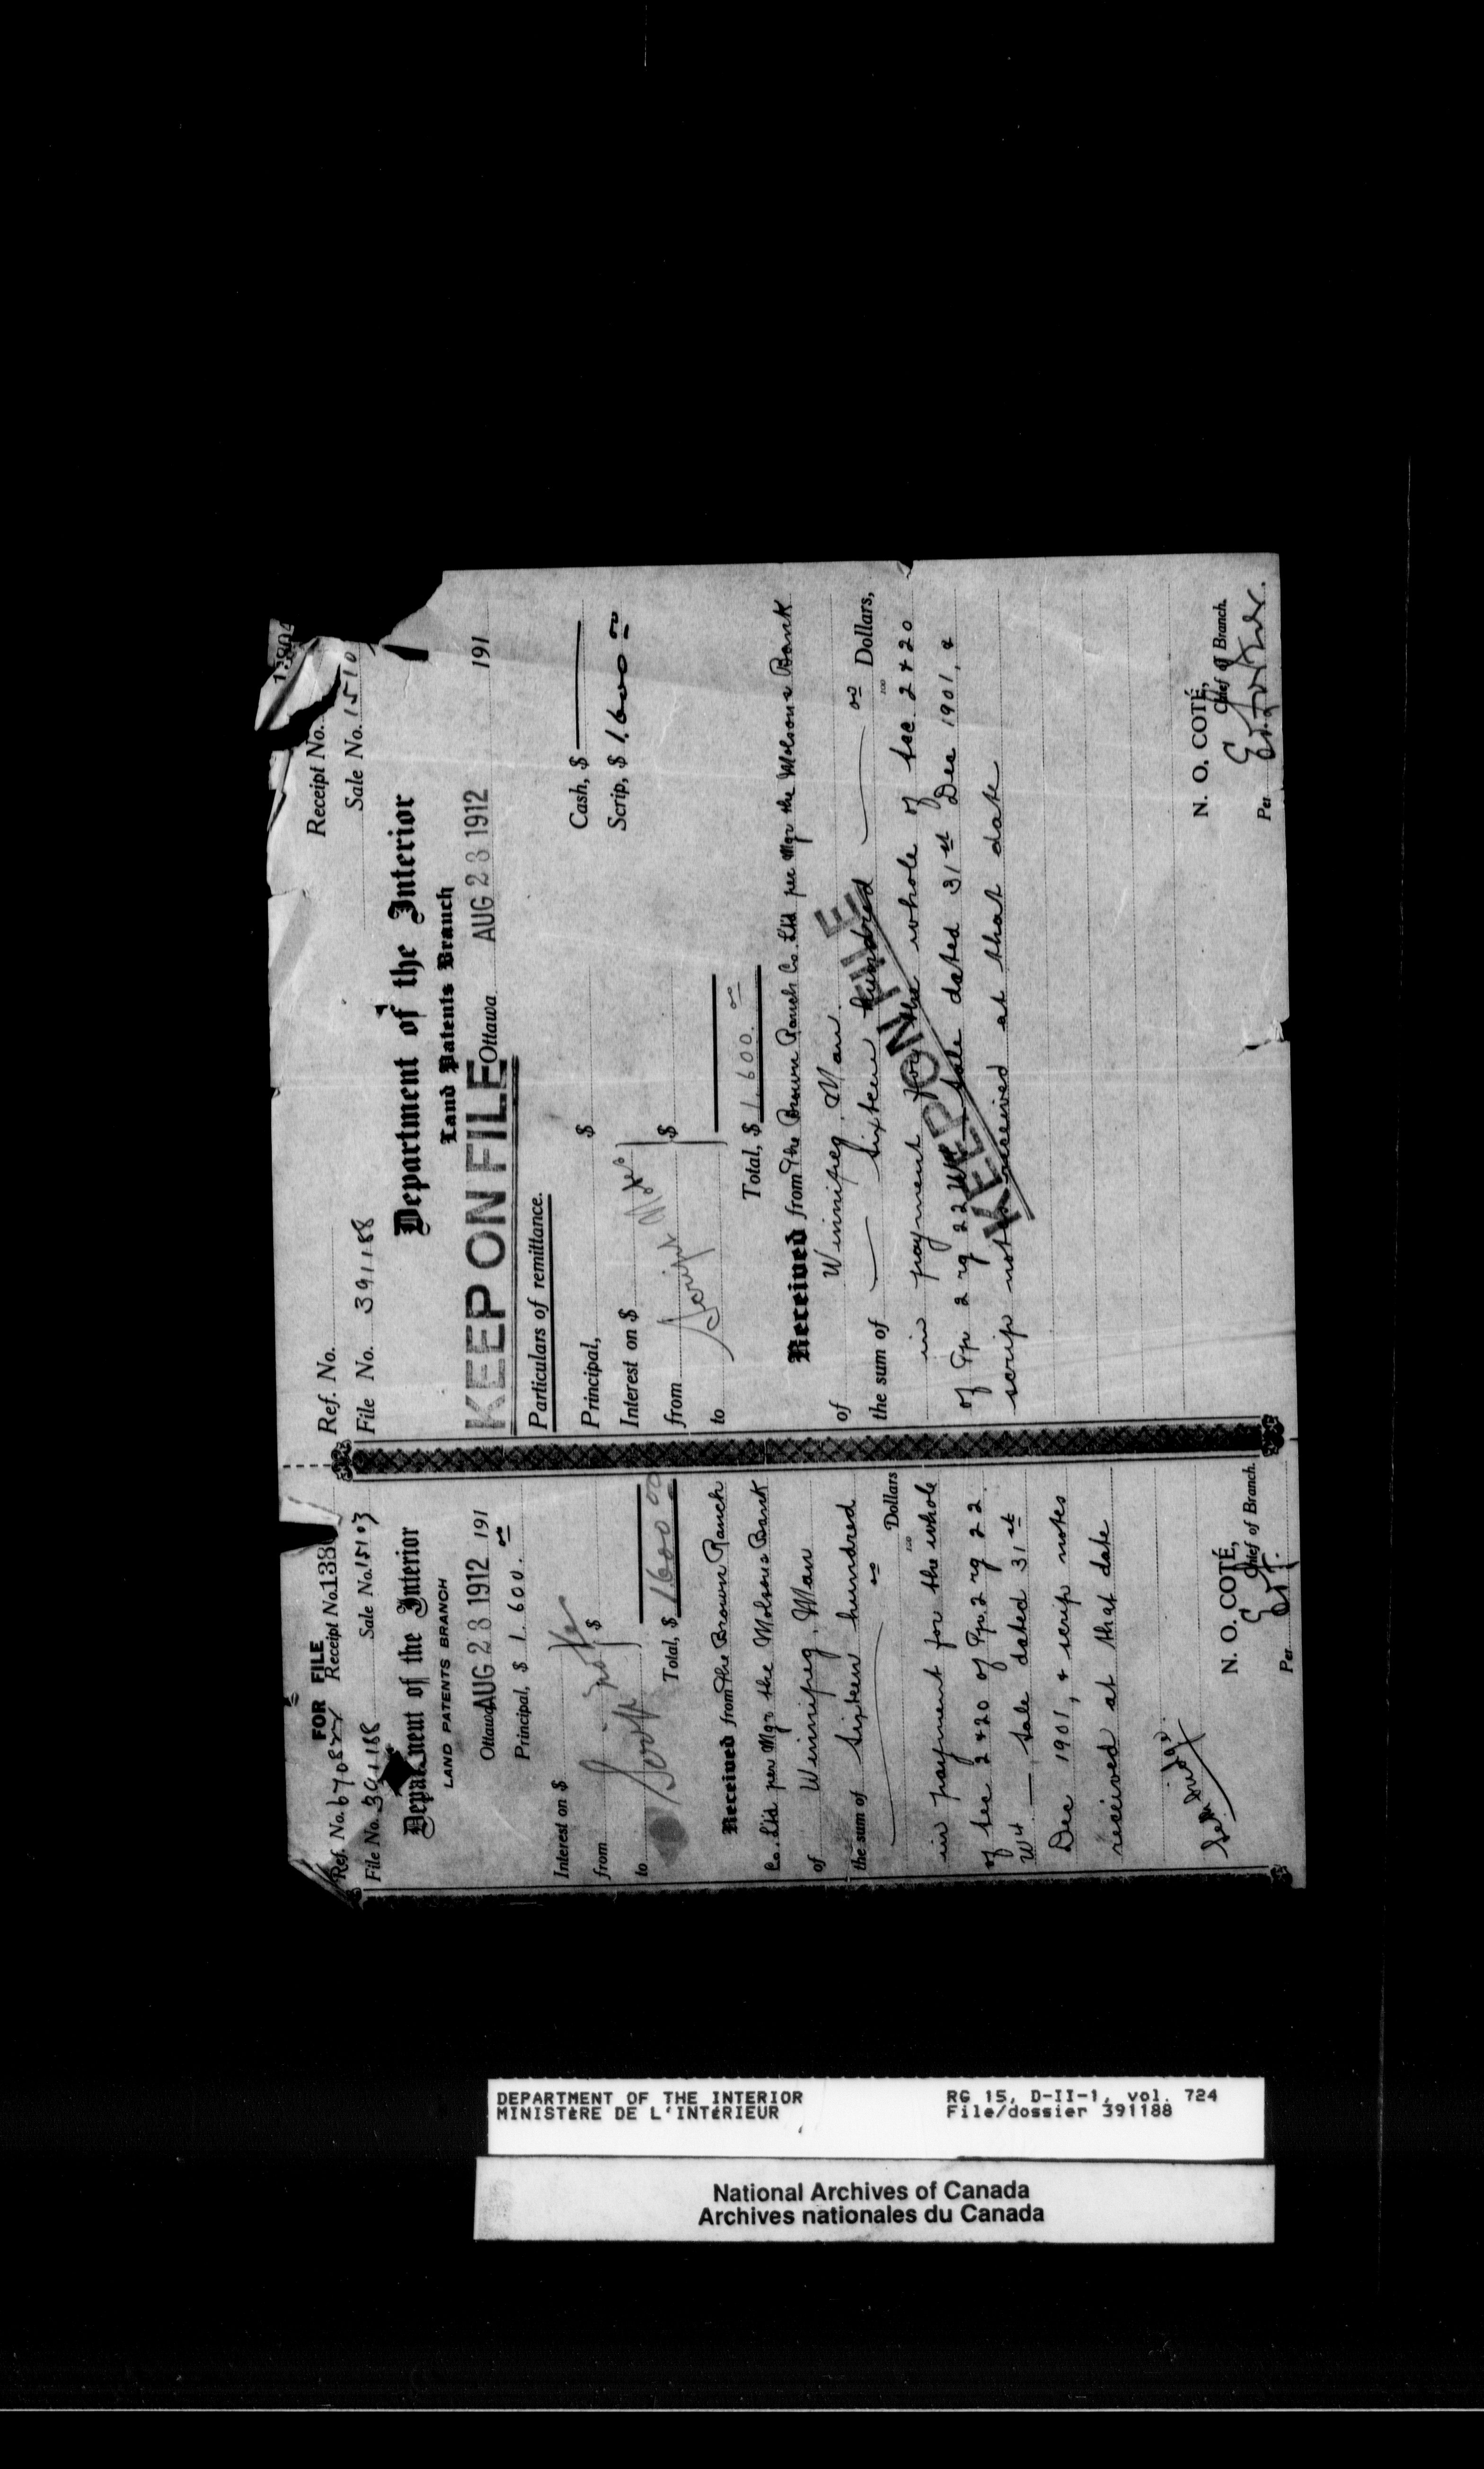 FOR FILE
Ref. No. 670822 Receipt No. 138
File No. 391188 Sale No. 15103
Department of the Interior
LAND PATENTS BRANCH
Ottawa, AUG 23 1912 191
Principal, $ 1.600.00
Interest on $
from $
to
Scrip note
Total, $ 1600 00
Received from The Brown Ranch
Co. Ltd per Mgr the Molsons Bank
of Winnipeg, Man
the sum of Sixteen hundred
00/100 Dollars
in payment for the whole
of Sec 2 & 20 of Tp. 2 rg 22.
W4 — Sale dated 31st
Dec 1901, & scrip notes
received at that date
N. O. COTÉ,
Chief of Branch.
Per
Ref. No. Receipt No. 13804
File No. 391188 Sale No. 1510
Department of the Interior
Land Patents Branch
KEEP ON FILE Ottawa AUG 23 1912 191
Particulars of remittance.
Principal, $ Cash, $
Interest on $ Scrip, $ 1.600 00
from $
to
Scrip Notes
Total, $ 1.600. 00
Received from The Brown Ranch Co. Ltd per Mgr the Molsons Bank
of Winnipeg, Man.
the sum of Sixteen hundred 00/100 Dollars,
in payment for the whole of Sec. 2 & 20
of Tp. 2 rg 22 W4 — Sale dated 31st Dec 1901, &
scrip notes received at that date
KEEP ON FILE
N. O. COTÉ,
Chief of Branch.
Per
DEPARTMENT OF THE INTERIOR RG 15, D-II-1, vol. 724
MINISTÈRE DE L'INTÉRIEUR File/dossier 391188
National Archives of Canada
Archives nationales du Canada